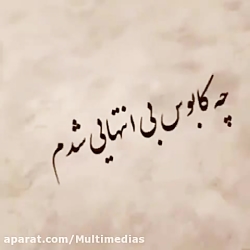 چه کابوس بی انتهایی شدم
aparat.com/Multimedias